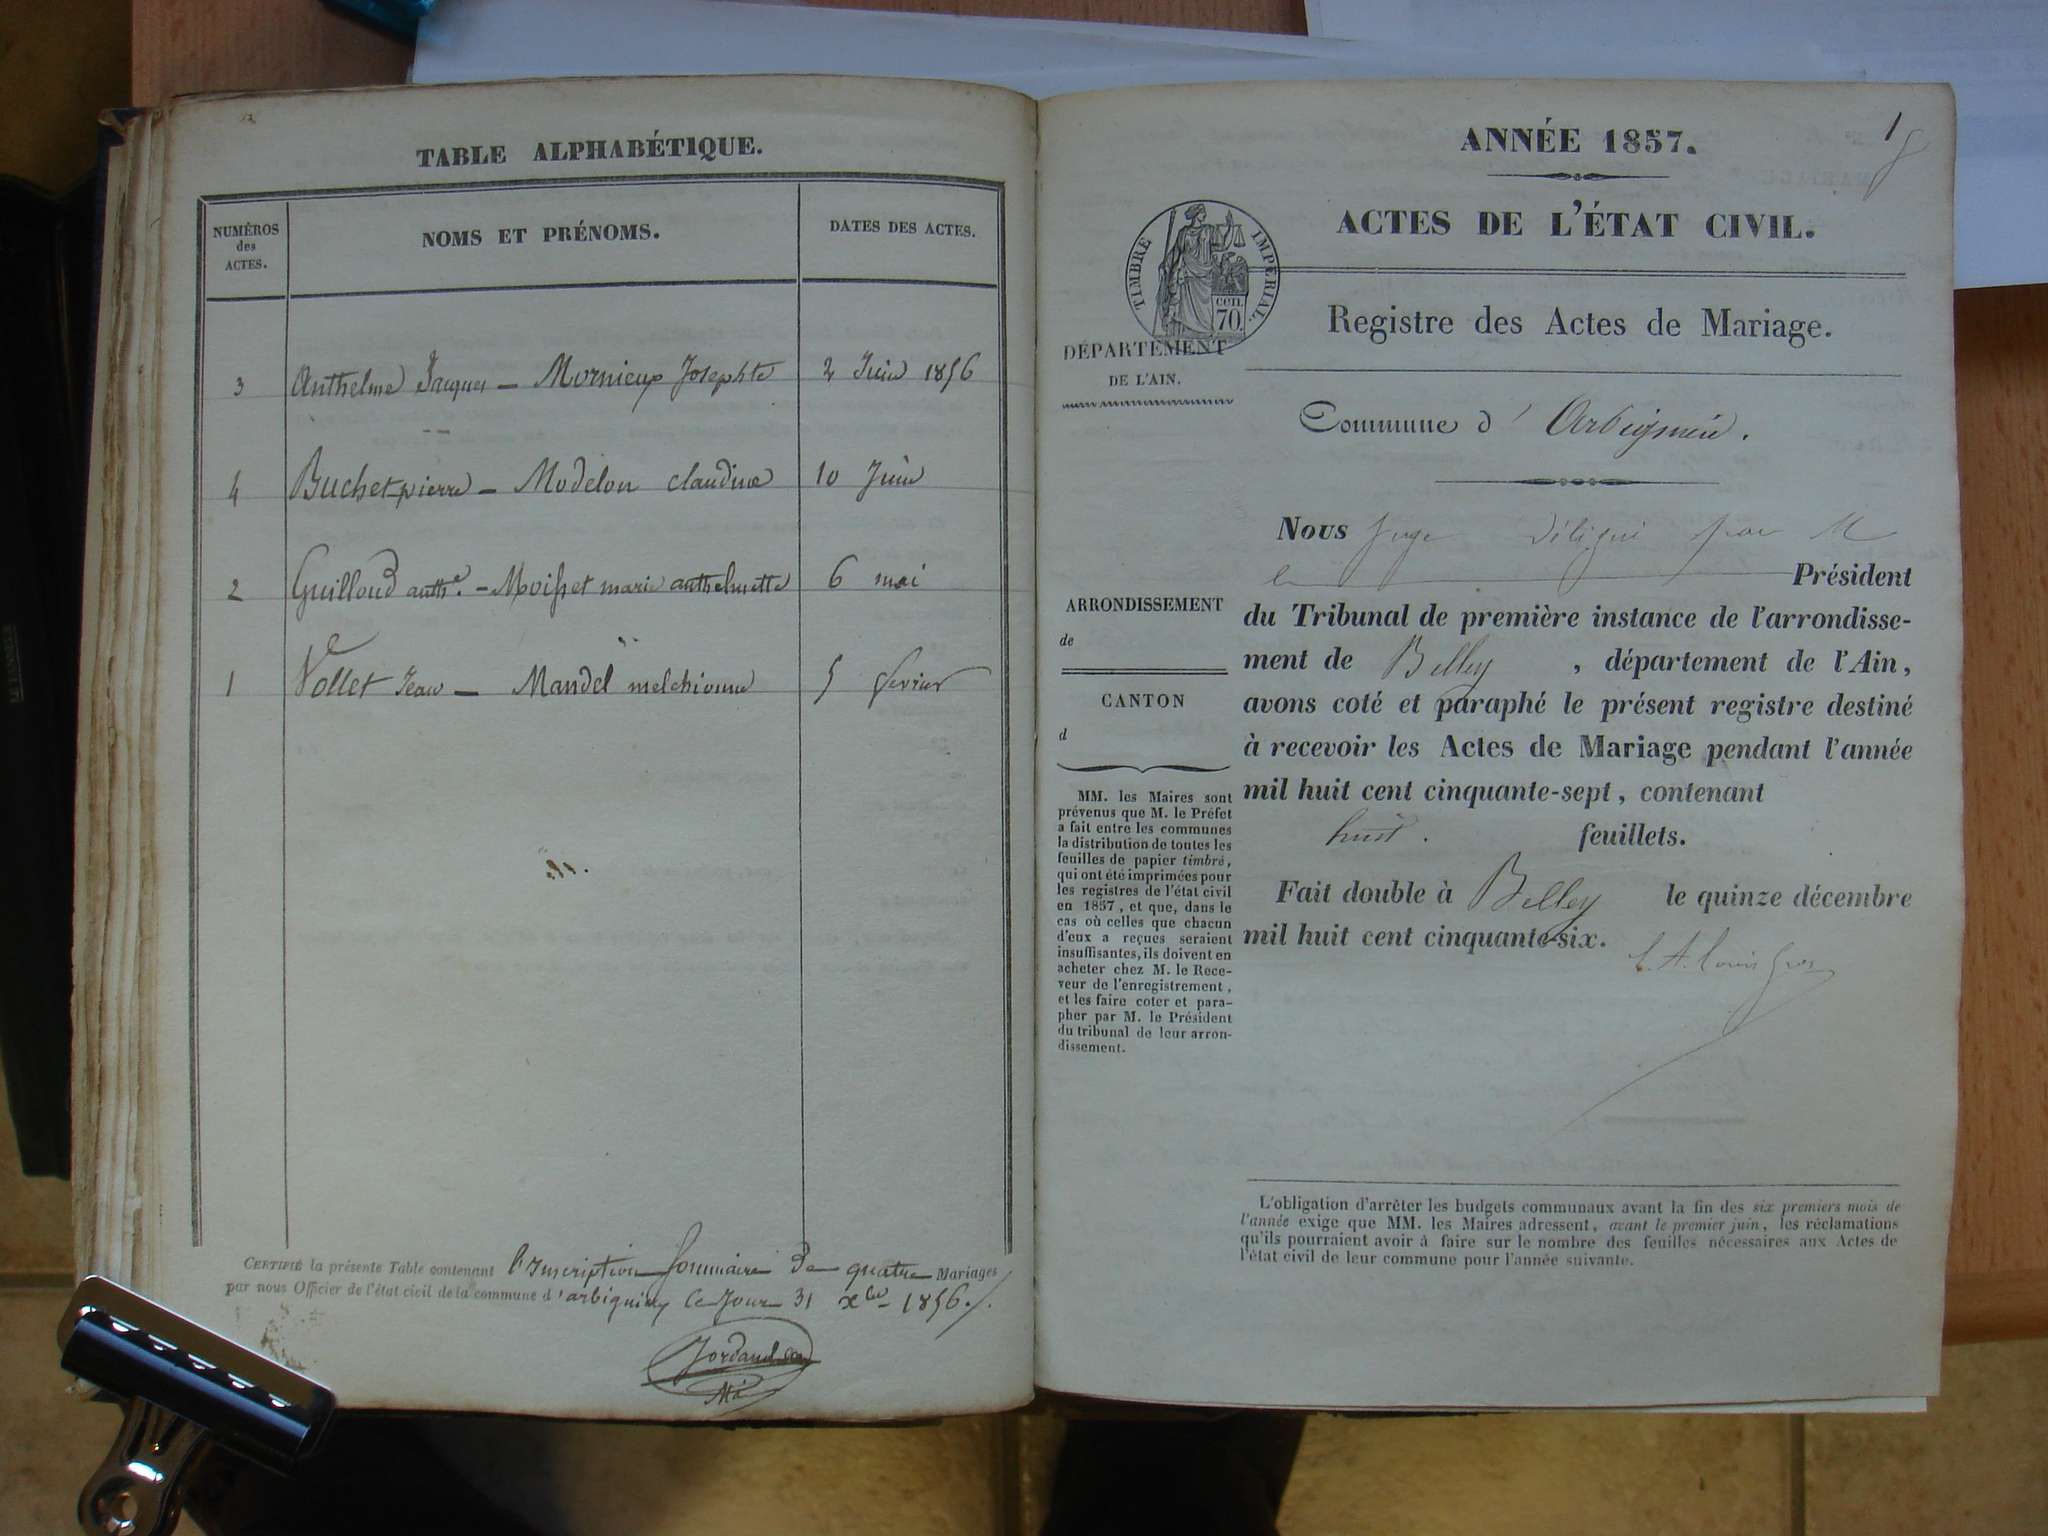 TABLE ALPHABÉTIQUE.
NUMÉROS
des
ACTES.
NOMS ET PRÉNOMS.
DATES DES ACTES.
3 Anthelme Jacques — Mornieux Josephte 2 Juin 1856
4 Buchet pierre — Modelon claudine 10 Juin
2 Guilloud anth.e — Moisset marie anthelmette 6 mai
1 Vollet Jean — Mandel melchionne 5 fevrier
CERTIFIÉ la présente Table contenant l'Inscription Sommaire De quatre Mariages
par nous Officier de l'état civil de la commune d'arbignieu Ce Jour 31 xbre 1856.
Jordand
Mre
1
ANNÉE 1857.
ACTES DE L'ÉTAT CIVIL.
TIMBRE IMPÉRIAL.
CEN.
70.
Registre des Actes de Mariage.
DÉPARTEMENT
DE L'AIN.
Commune d'Arbignieu.
Nous Juge délégué par M
le Président
du Tribunal de première instance de l'arrondisse-
ment de Belley, département de l'Ain,
avons coté et paraphé le présent registre destiné
à recevoir les Actes de Mariage pendant l'année
mil huit cent cinquante-sept, contenant
huit. feuillets.
Fait double à Belley le quinze décembre
mil huit cent cinquante-six.
ARRONDISSEMENT
de
CANTON
d
MM. les Maires sont
prévenus que M. le Préfet
a fait entre les communes
la distribution de toutes les
feuilles de papier timbré,
qui ont été imprimées pour
les registres de l'état civil
en 1857, et que, dans le
cas où celles que chacun
d'eux a reçues seraient
insuffisantes, ils doivent en
acheter chez M. le Rece-
veur de l'enregistrement,
et les faire coter et para-
pher par M. le Président
du tribunal de leur arron-
dissement.
L'obligation d'arrêter les budgets communaux avant la fin des six premiers mois de
l'année exige que MM. les Maires adressent, avant le premier juin, les réclamations
qu'ils pourraient avoir à faire sur le nombre des feuilles nécessaires aux Actes de
l'état civil de leur commune pour l'année suivante.